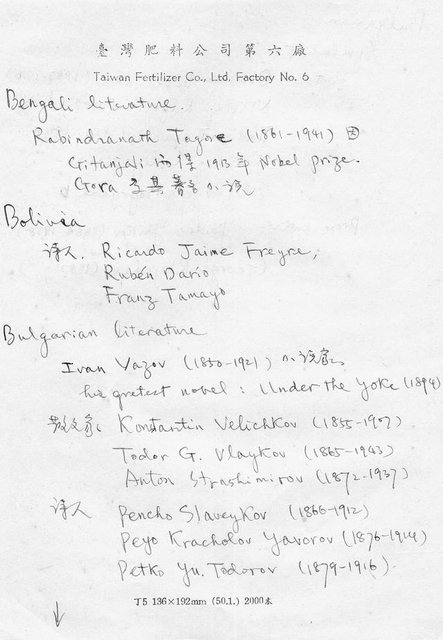 臺灣肥料公司第六廠
Taiwan Fertilizer Co., Ltd. Factory No. 6
Bengali literature.
Rabindranath Tagore (1861-1941) 因
Gitanjali 而得 1913年 Nobel prize.
Gora 為其著名小说
Bolivia
诗人. Ricardo Jaime Freyre,
Rubén Darío
Franz Tamayo
Bulgarian literature
Ivan Vazov (1850-1921) 小说家
his gretest novel : Under the Yoke (1894)
散文家 Konstantin Velichkov (1855-1907)
Todor G. Vlaykov (1865-1943)
Anton Strashimirov (1872-1937)
诗人 Pencho Slaveykov (1866-1912)
Peyo Kracholov Yavorov (1876-1914)
Petko Yu. Todorov (1879-1916).
T5 136×192mm (50.1.) 2000本